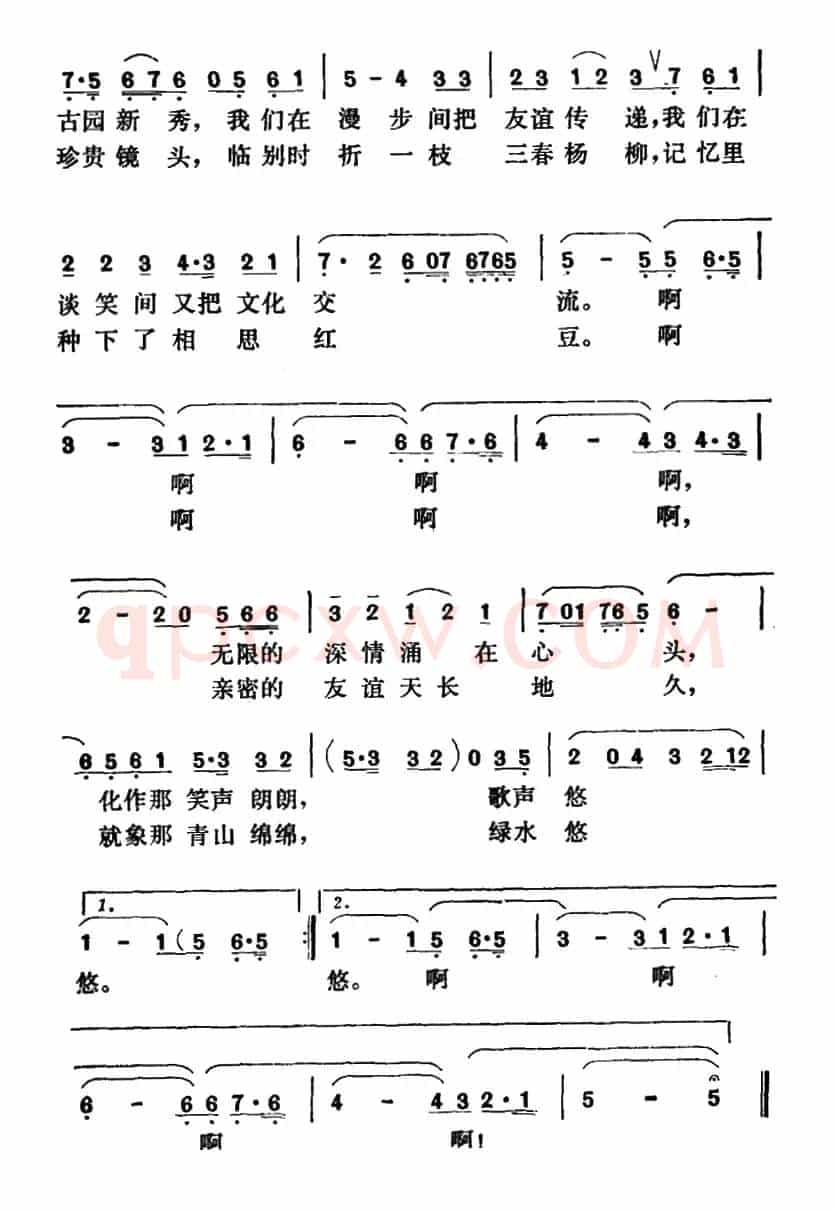 7·5 6 7 6 0 5 6 1 | 5 - 4 3 3 | 2 3 1 2 3 7 6 1 |
古园新 秀，我们在 漫 步 间把 友谊传 递，我们在
珍贵镜 头，临别时 折 一 枝 三春杨 柳，记忆里
2 2 3 4·3 2 1 | 7· 2 6 07 6765 | 5 - 5 5 6·5 |
谈 笑 间 又把 文化 交 流。 啊
种 下 了 相 思 红 豆。 啊
3 - 3 1 2·1 | 6 - 6 6 7·6 | 4 - 4 3 4·3 |
啊 啊 啊，
啊 啊 啊，
2 - 2 0 5 6 6 | 3 2 1 2 1 | 7 01 76 5 | 6 -
qpcxw.COM
无限的 深 情 涌 在 心 头，
亲密的 友 谊 天 长 地 久，
6 5 6 1 5·3 3 2 | (5·3 3 2) 0 3 5 | 2 0 4 3 2 12 |
化作那 笑声 朗朗， 歌声 悠
就象那 青山 绵绵， 绿水 悠
1. 2.
1 - 1 (5 6·5 :| 1 - 1 5 6·5 | 3 - 3 1 2·1 |
悠。 悠。 啊 啊
6 - 6 6 7·6 | 4 - 4 3 2·1 | 5 - 5 ||
啊 啊！